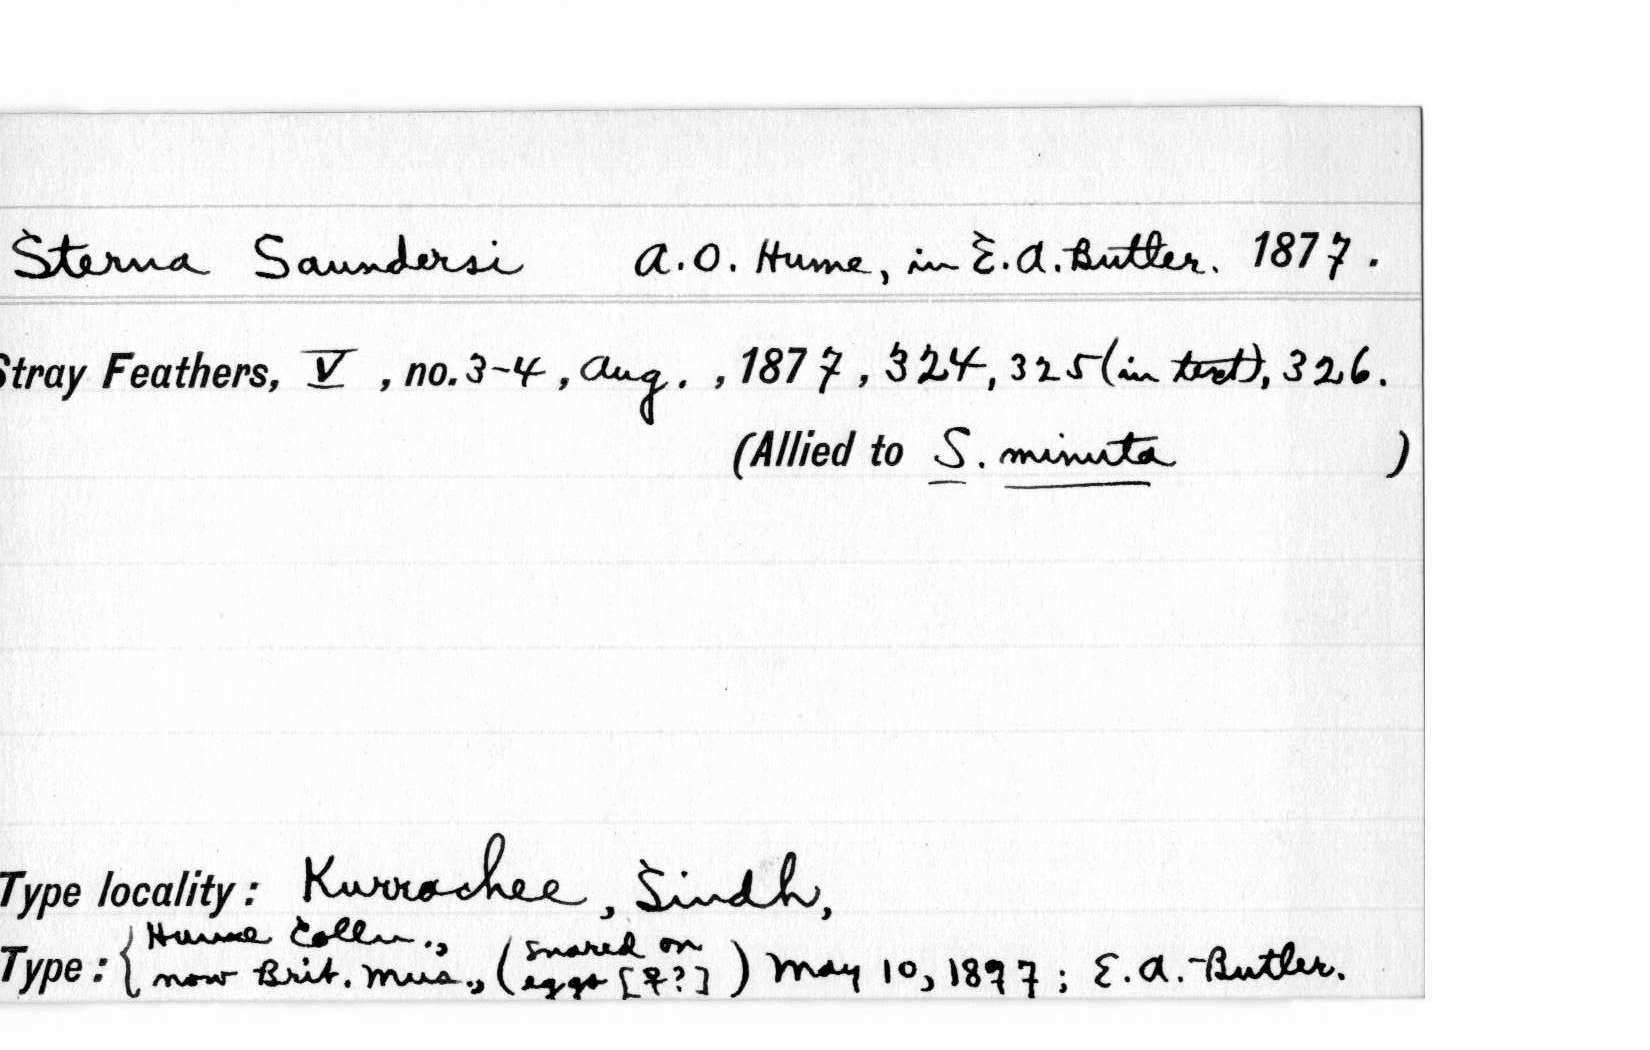 Sterna Saundersi A. O. Hume, in E. A. Butler. 1877.
Stray Feathers, V, no. 3-4, Aug., 1877, 324, 325 (in text), 326.
(Allied to S. minuta )
Type locality: Kurrachee, Sindh,
Type: { Hume Colln., (snared on
now Brit. Mus., eggs [♀?]) May 10, 1877; E. A. Butler.